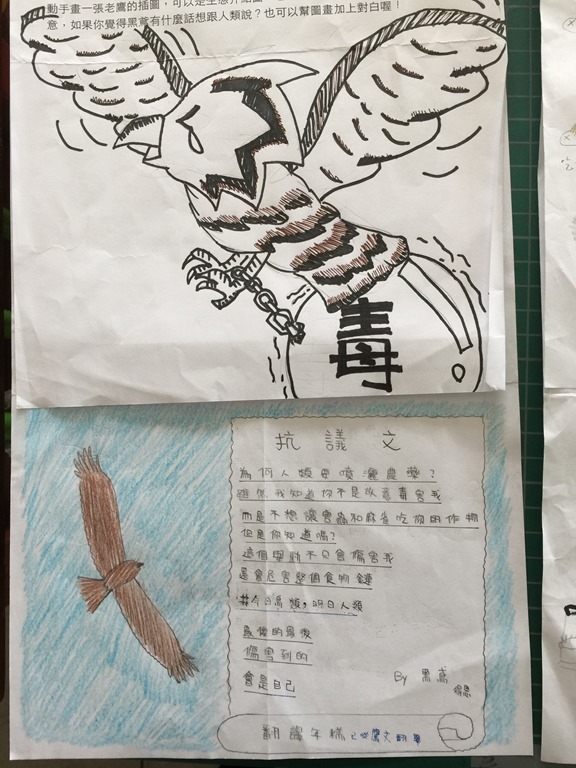 動手畫一張老鷹的插圖，可以是生態介紹圖
意，如果你覺得黑鳶有什麼話想跟人類說？也可以幫圖畫加上對白喔！
毒
抗議文
為何人類要噴灑農藥？
雖然我知道你不是故意毒害我
而是不想讓害蟲和麻雀吃你的作物
但是你知道嗎？
這個舉動不只會傷害我
還會危害整個食物鏈
#今日鳥類，明日人類
最後的最後
傷害到的
會是自己
By 黑鳶
翻譯年糕